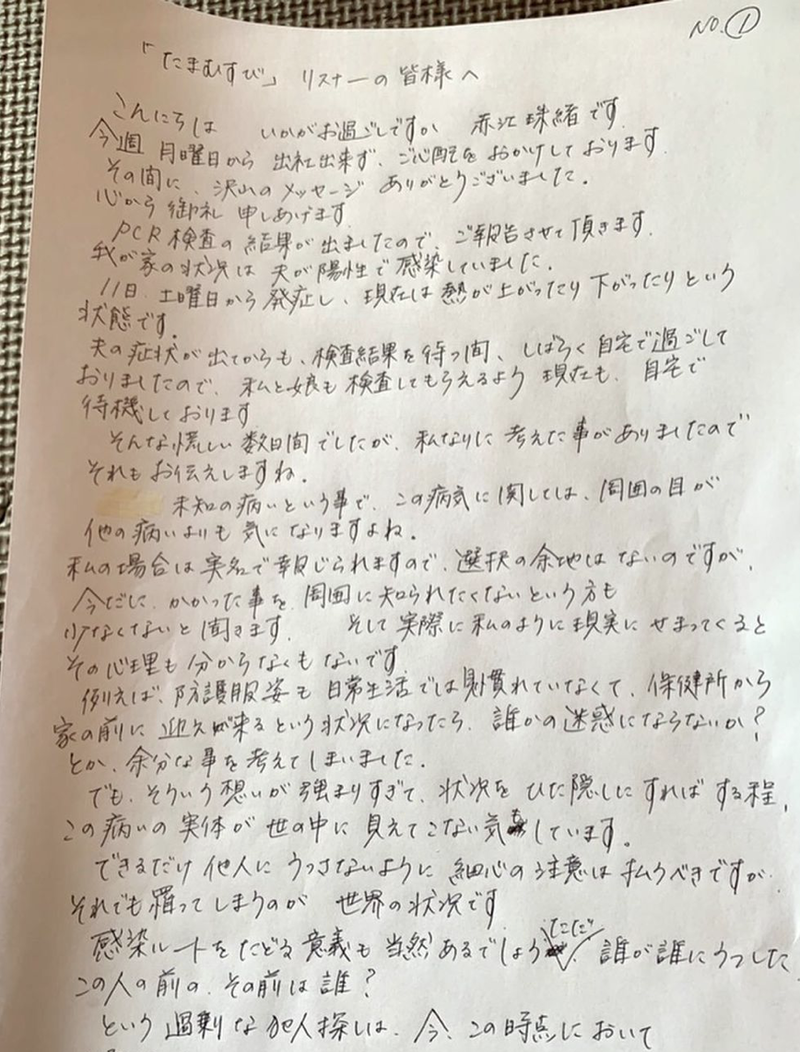 NO.①
「たまむすび」リスナーの皆様へ
こんにちは いかがお過ごしですか 赤江珠緒です
今週 月曜日から 出社出来ず、ご心配を おかけしております.
その間に、沢山のメッセージ ありがとうございました.
心から 御礼 申しあげます
PCR検査の結果が出ましたので、ご報告させて頂きます.
我が家の状況は 夫が陽性で感染していました.
11日、土曜日から発症し、現在は 熱が上がったり 下がったりという
状態です.
夫の症状が出てからも、検査結果を待つ間、しばらく自宅で過ごして
おりましたので、私と娘も検査してもらえるよう 現在も、自宅で
待機しております
そんな慌しい数日間でしたが、私なりに考えた事がありましたので
それもお伝えしますね.
未知の病いという事で、この病気に関しては、周囲の目が
他の病いよりも気になりますよね.
私の場合は実名で報じられますので、選択の余地はないのですが、
今だに、かかった事を、周囲に知られたくないという方も
少なくないと聞きます. そして実際に私のように現実にせまってくると
その心理も分からなくもないです.
例えば、防護服姿も日常生活では見慣れていなくて、保健所から
家の前に迎えが来るという状況になったら、誰かの迷惑にならないか?
とか、余分な事を考えてしまいました.
でも、そういう想いが強まりすぎて、状況をひた隠しにすればする程、
この病いの実体が世の中に見えてこない気もしています。
できるだけ他人にうつさないように細心の注意は払うべきですが
それでも罹ってしまうのが 世界の状況です
感染ルートをたどる意義も当然あるでしょう ただ、誰が誰にうつした
この人の前の、その前は誰?
という過剰な犯人探しは、今、この時点において